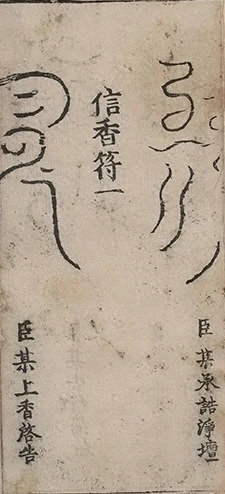 臣某承誥淨壇
信香符一
臣某上香啓告